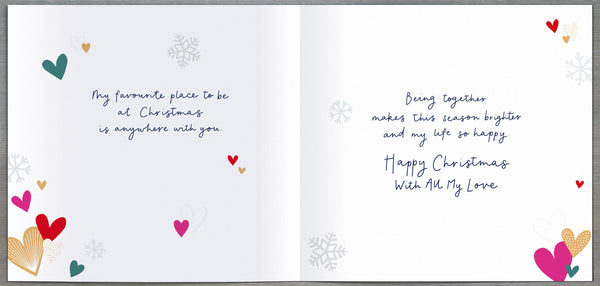 My favourite place to be
at Christmas
is anywhere with you.
Being together
makes this season brighter
and my life so happy.
Happy Christmas
With All My Love